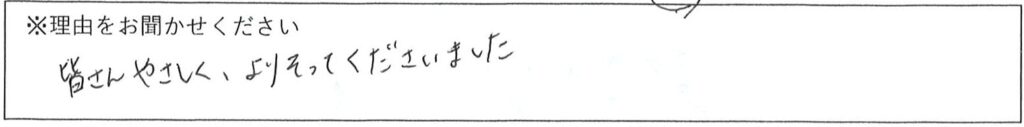 ※理由をお聞かせください
皆さんやさしく、よりそってくださいました